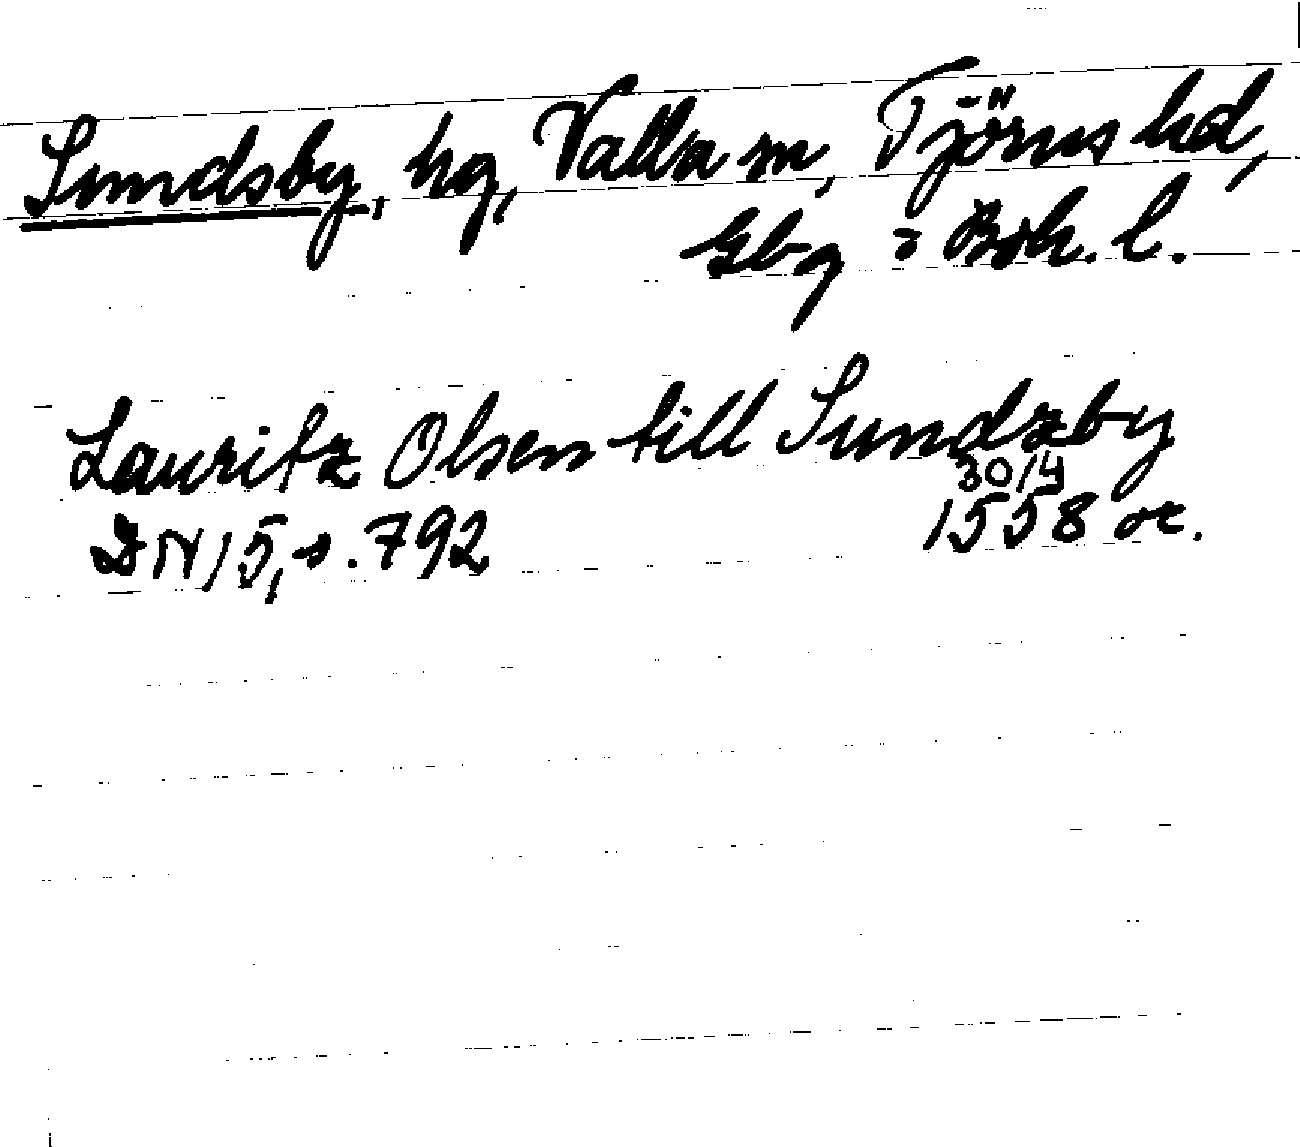 Sundsby, hg, Valla sn, Tjörns hd,
Gbg = Boh. l.
Lauritz Olsen till Sundzby
30/4
DN 15, s. 792 1558 or.